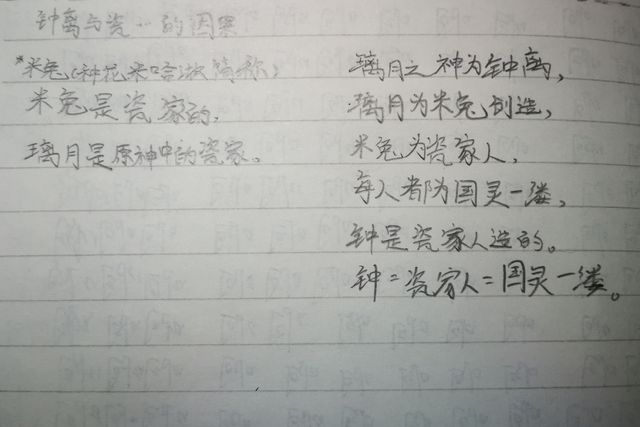 钟离与瓷…的因果
*米兔(种花米哈游简称)
米兔是瓷家的,
璃月是原神中的瓷家。
璃月之神为钟离,
璃月为米兔创造,
米兔为瓷家人,
每人都为国灵一缕,
钟是瓷家人造的。
钟=瓷家人=国灵一缕。